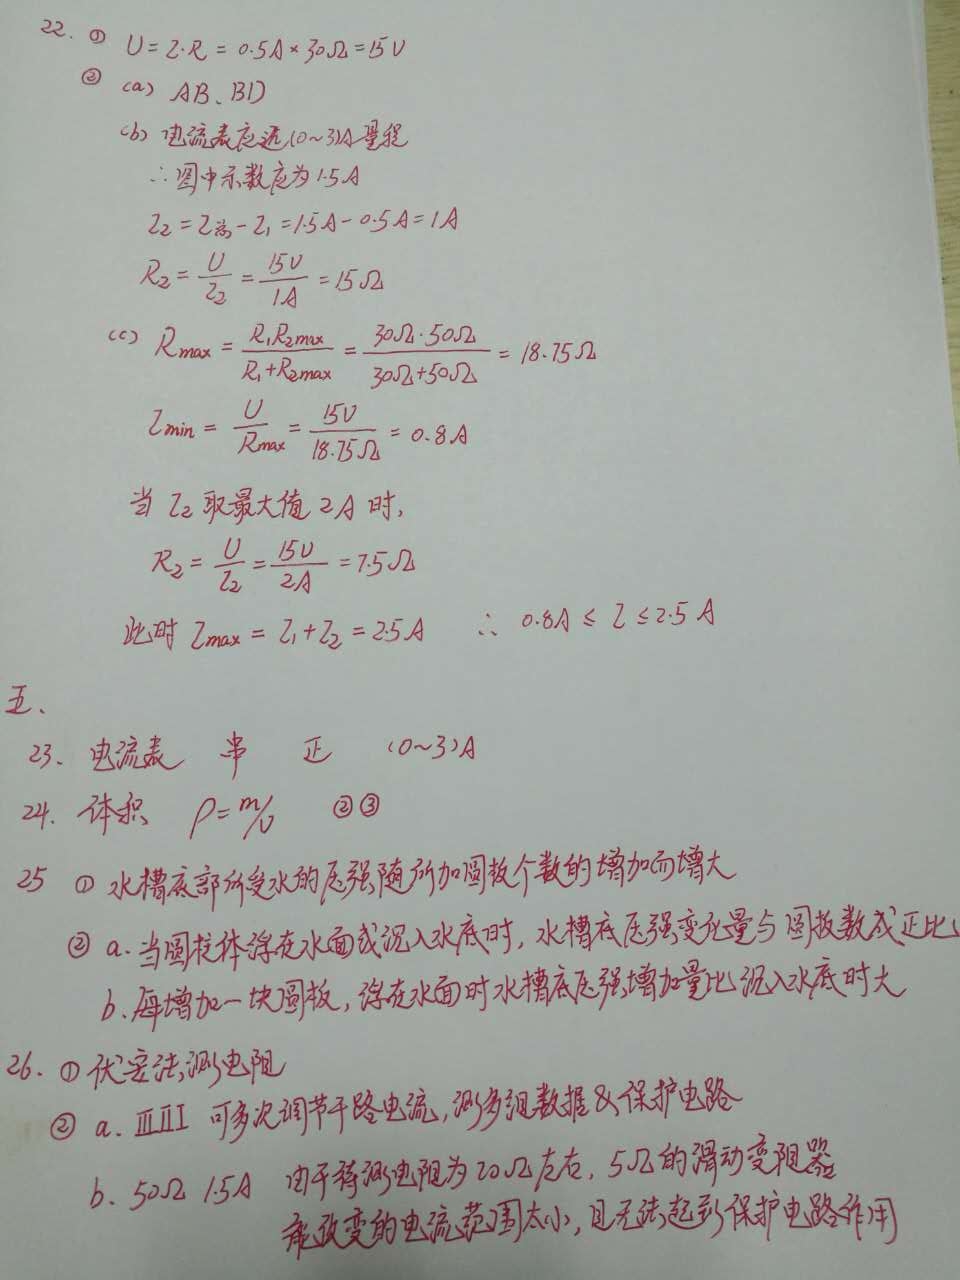 22. ① U=I·R=0.5A×30Ω=15V
② (a) AB、BD
(b) 电流表应选(0~3)A量程
∴图中示数应为1.5A
I₂=I总-I₁=1.5A-0.5A=1A
R₂=U/I₂=15V/1A=15Ω
(c) Rmax=R₁R₂max/(R₁+R₂max)=30Ω·50Ω/(30Ω+50Ω)=18.75Ω
Imin=U/Rmax=15V/18.75Ω=0.8A
当I₂取最大值2A时,
R₂=U/I₂=15V/2A=7.5Ω
此时Imax=I₁+I₂=2.5A ∴ 0.8A≤I≤2.5A
五、
23. 电流表 串 正 (0~3)A
24. 体积 ρ=m/V ②③
25 ① 水槽底部所受水的压强随所加圆板个数的增加而增大
② a.当圆柱体浮在水面或沉入水底时,水槽底压强变化量与圆板数成正比
b.每增加一块圆板,浮在水面时水槽底压强增加量比沉入水底时大
26. ① 伏安法测电阻
② a. ⅢⅡⅠ 可多次调节干路电流,测多组数据&保护电路
b. 50Ω 1.5A 由于待测电阻为20Ω左右,5Ω的滑动变阻器
能改变的电流范围太小,且无法起到保护电路作用